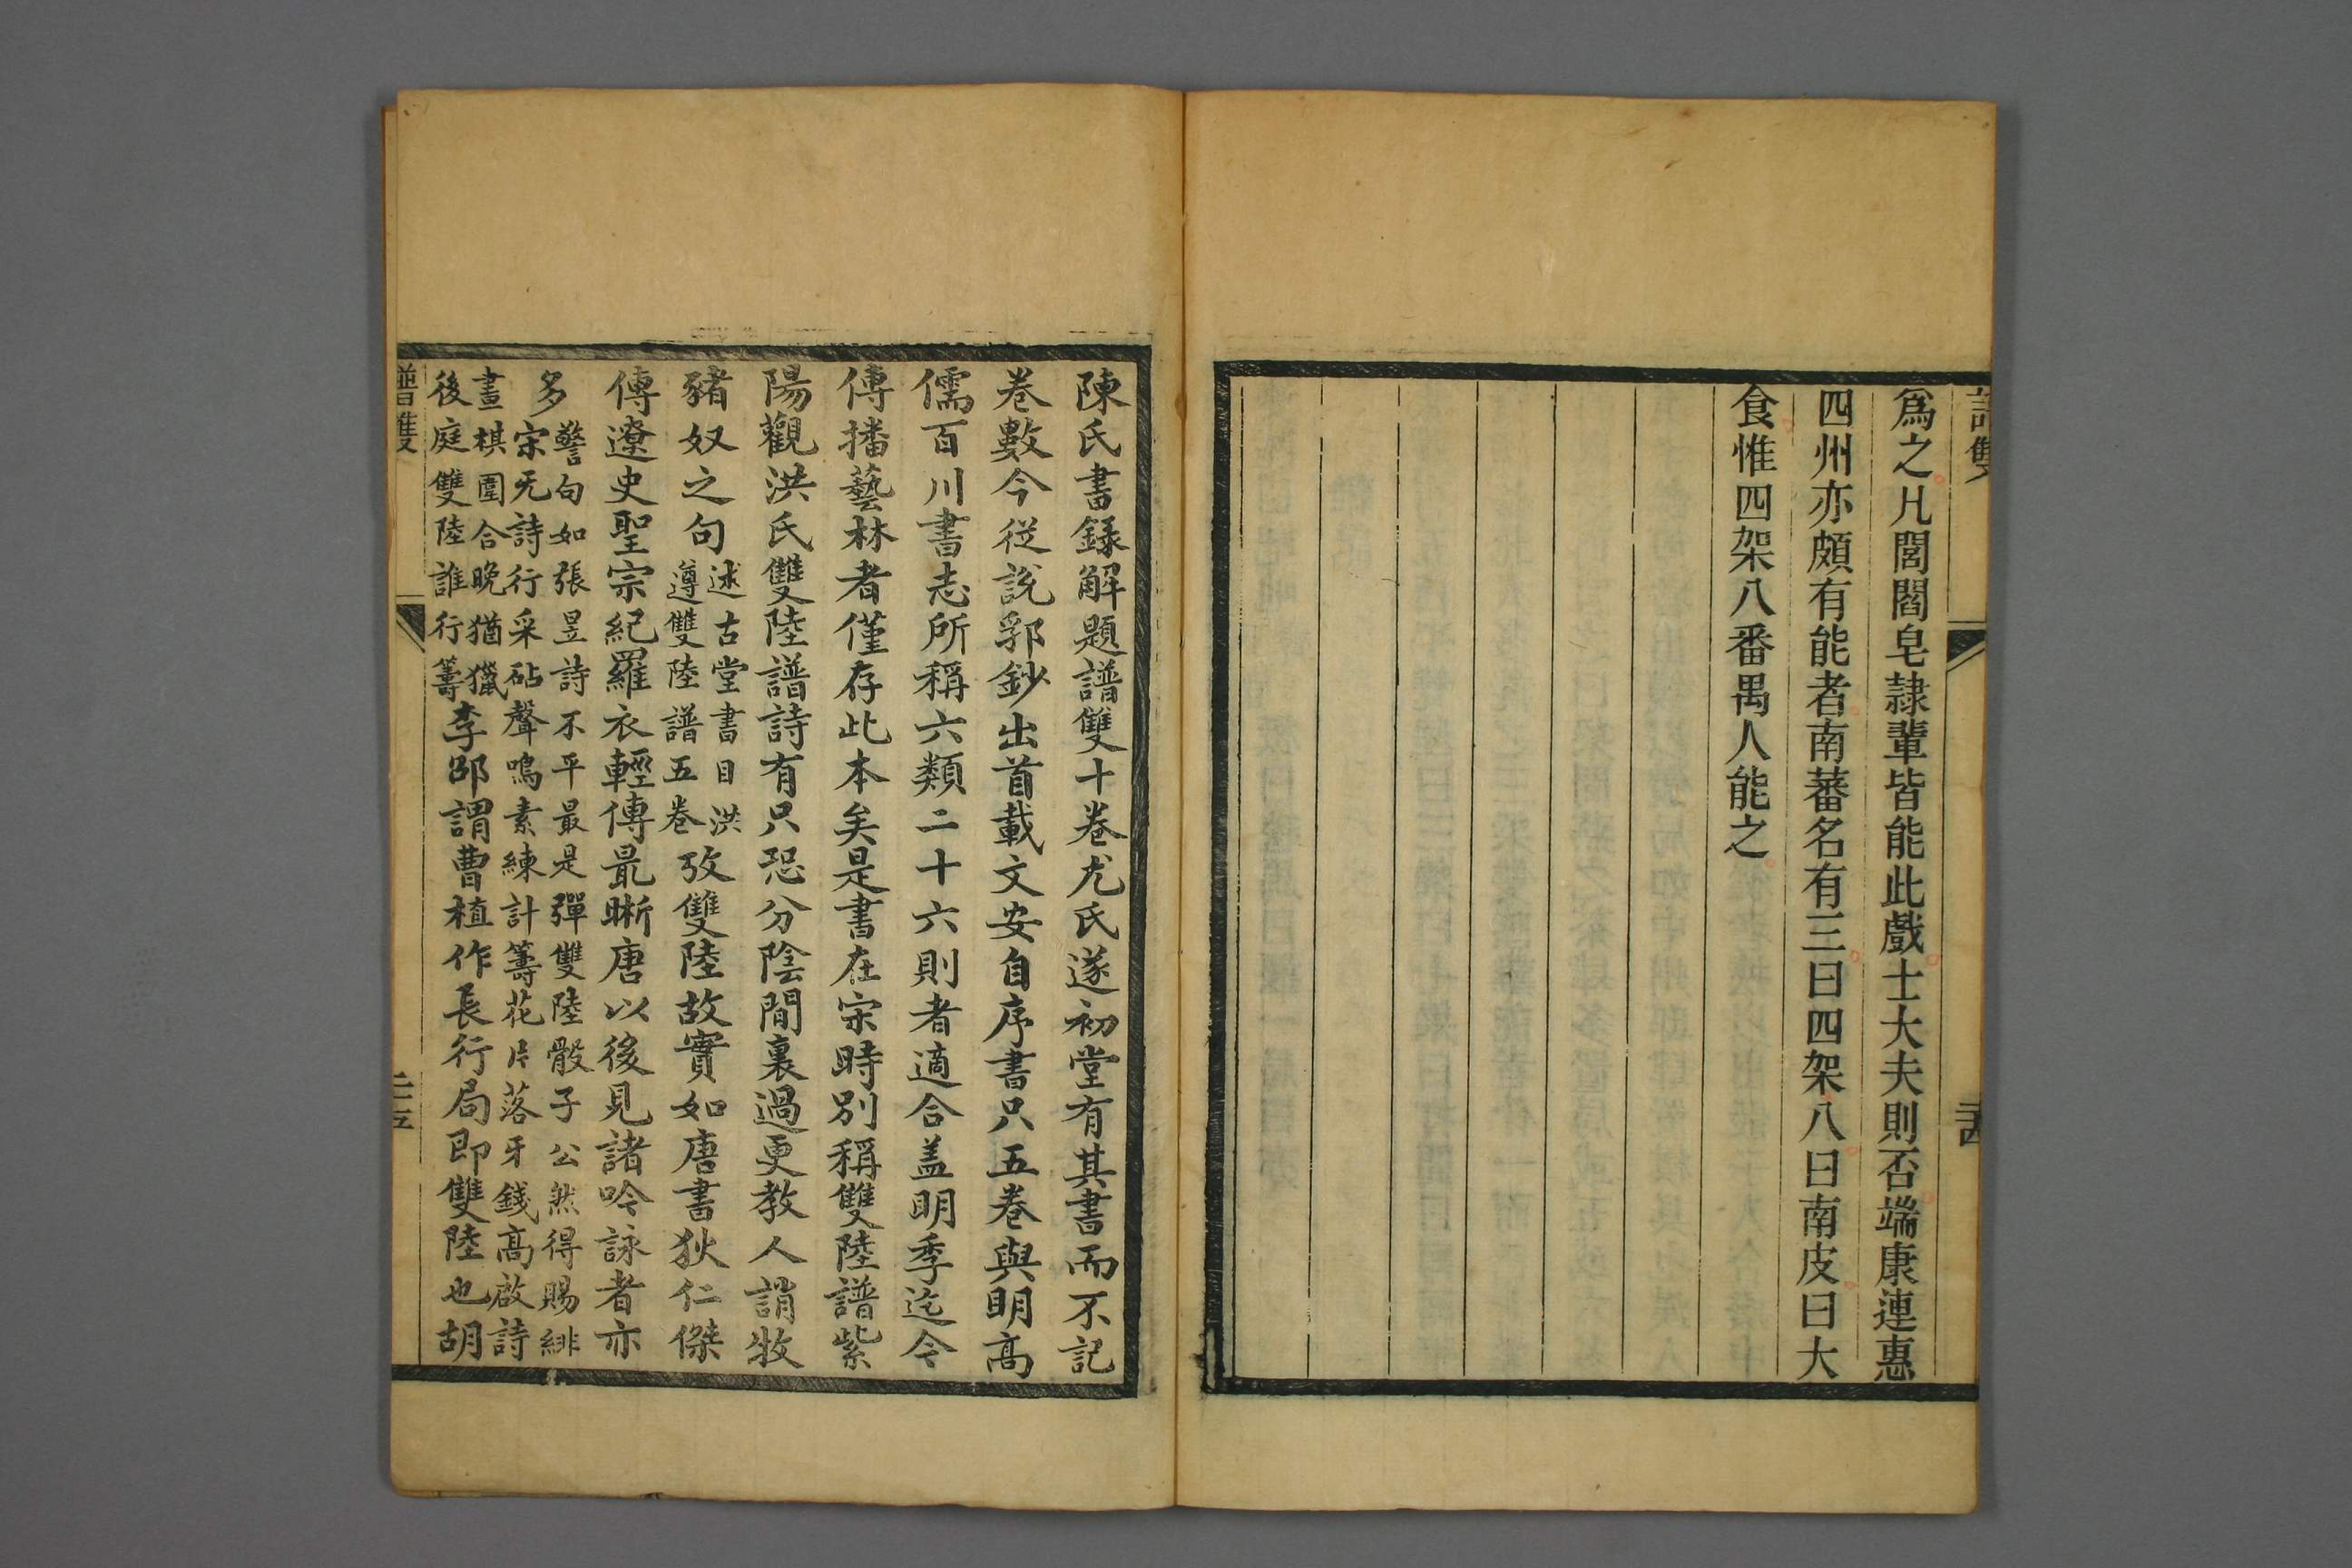 譜雙
爲之凡閭閻皂隷輩皆能此戲士大夫則否端康連惠
四州亦頗有能者南蕃名有三曰四架八曰南皮曰大
食惟四架八番禺人能之
陳氏書錄解題譜雙十卷尤氏遂初堂有其書而不記
卷數今從說郛鈔出首載文安自序書只五卷與明高
儒百川書志所稱六類二十六則者適合盖明季迄今
傳播藝林者僅存此本矣是書在宋時別稱雙陸譜紫
陽觀洪氏雙陸譜詩有只恐分陰閒裏過更教人誚牧
豬奴之句述古堂書目洪遵雙陸譜五卷攷雙陸故實如唐書狄仁傑
傳遼史聖宗紀羅衣輕傳最晰唐以後見諸唫詠者亦
多警句如張昱詩不平最是彈雙陸骰子公然得賜緋宋无詩行采砧聲鳴素練計籌花片落牙錢高啟詩
畫棋圍合晚猶獵後庭雙陸誰行籌李邵謂曹植作長行局即雙陸也胡
譜雙
二十五